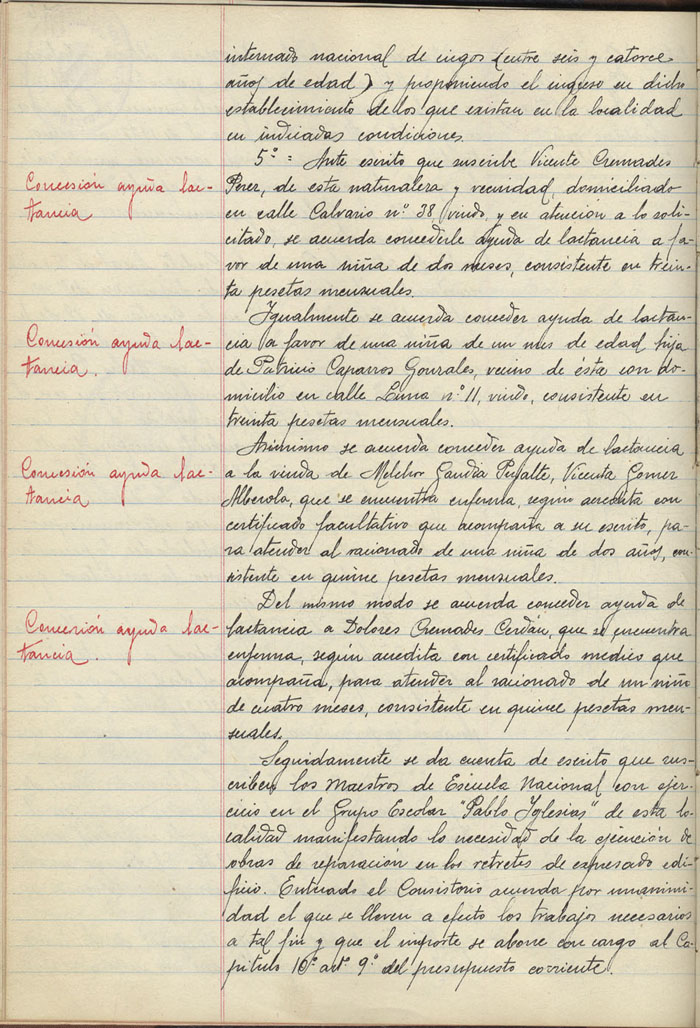 internado nacional de ciegos (entre seis y catorce
años de edad) y proponiendo el ingreso en dicho
establecimiento de los que existan en la localidad
en indicadas condiciones.
5º = Ante escrito que suscribe Vicente Cremades
Concesión ayuda lac-
tancia
Perez, de esta naturaleza y vecindad, domiciliado
en calle Calvario nº 38, viudo, y en atención a lo soli-
citado, se acuerda concederle ayuda de lactancia a fa-
vor de una niña de dos meses, consistente en trein-
ta pesetas mensuales.
Igualmente se acuerda conceder ayuda de lactan-
Concesión ayuda lac-
tancia.
cia a favor de una niña de un mes de edad hija
de Patricio Caparros Gonzales, vecino de ésta con do-
micilio en calle Luna nº 11, viudo, consistente en
treinta pesetas mensuales.
Asimismo se acuerda conceder ayuda de lactancia
Concesión ayuda lac-
tancia
a la viuda de Melchor Gandia Peralte, Vicenta Gomez
Alberola, que se encuentra enferma, según acredita con
certificado facultativo que acompaña a su escrito, pa-
ra atender al racionado de una niña de dos años, con-
sistente en quince pesetas mensuales.
Del mismo modo se acuerda conceder ayuda de
Concesión ayuda lac-
tancia.
lactancia a Dolores Cremades Cerdán, que se encuentra
enferma, según acredita con certificado medico que
acompaña, para atender al racionado de un niño
de cuatro meses, consistente en quince pesetas men-
suales.
Seguidamente se da cuenta de escrito que sus-
criben los Maestros de Escuela Nacional con ejer-
cicio en el Grupo Escolar "Pablo Iglesias" de esta lo-
calidad manifestando la necesidad de la ejecución de
obras de reparación en los retretes de expresado edi-
ficio. Enterado el Consistorio acuerda por unanimi-
dad el que se lleven a efecto los trabajos necesarios
a tal fin y que el importe se abone con cargo al Ca-
pitulo 10º artº 9º del presupuesto corriente.